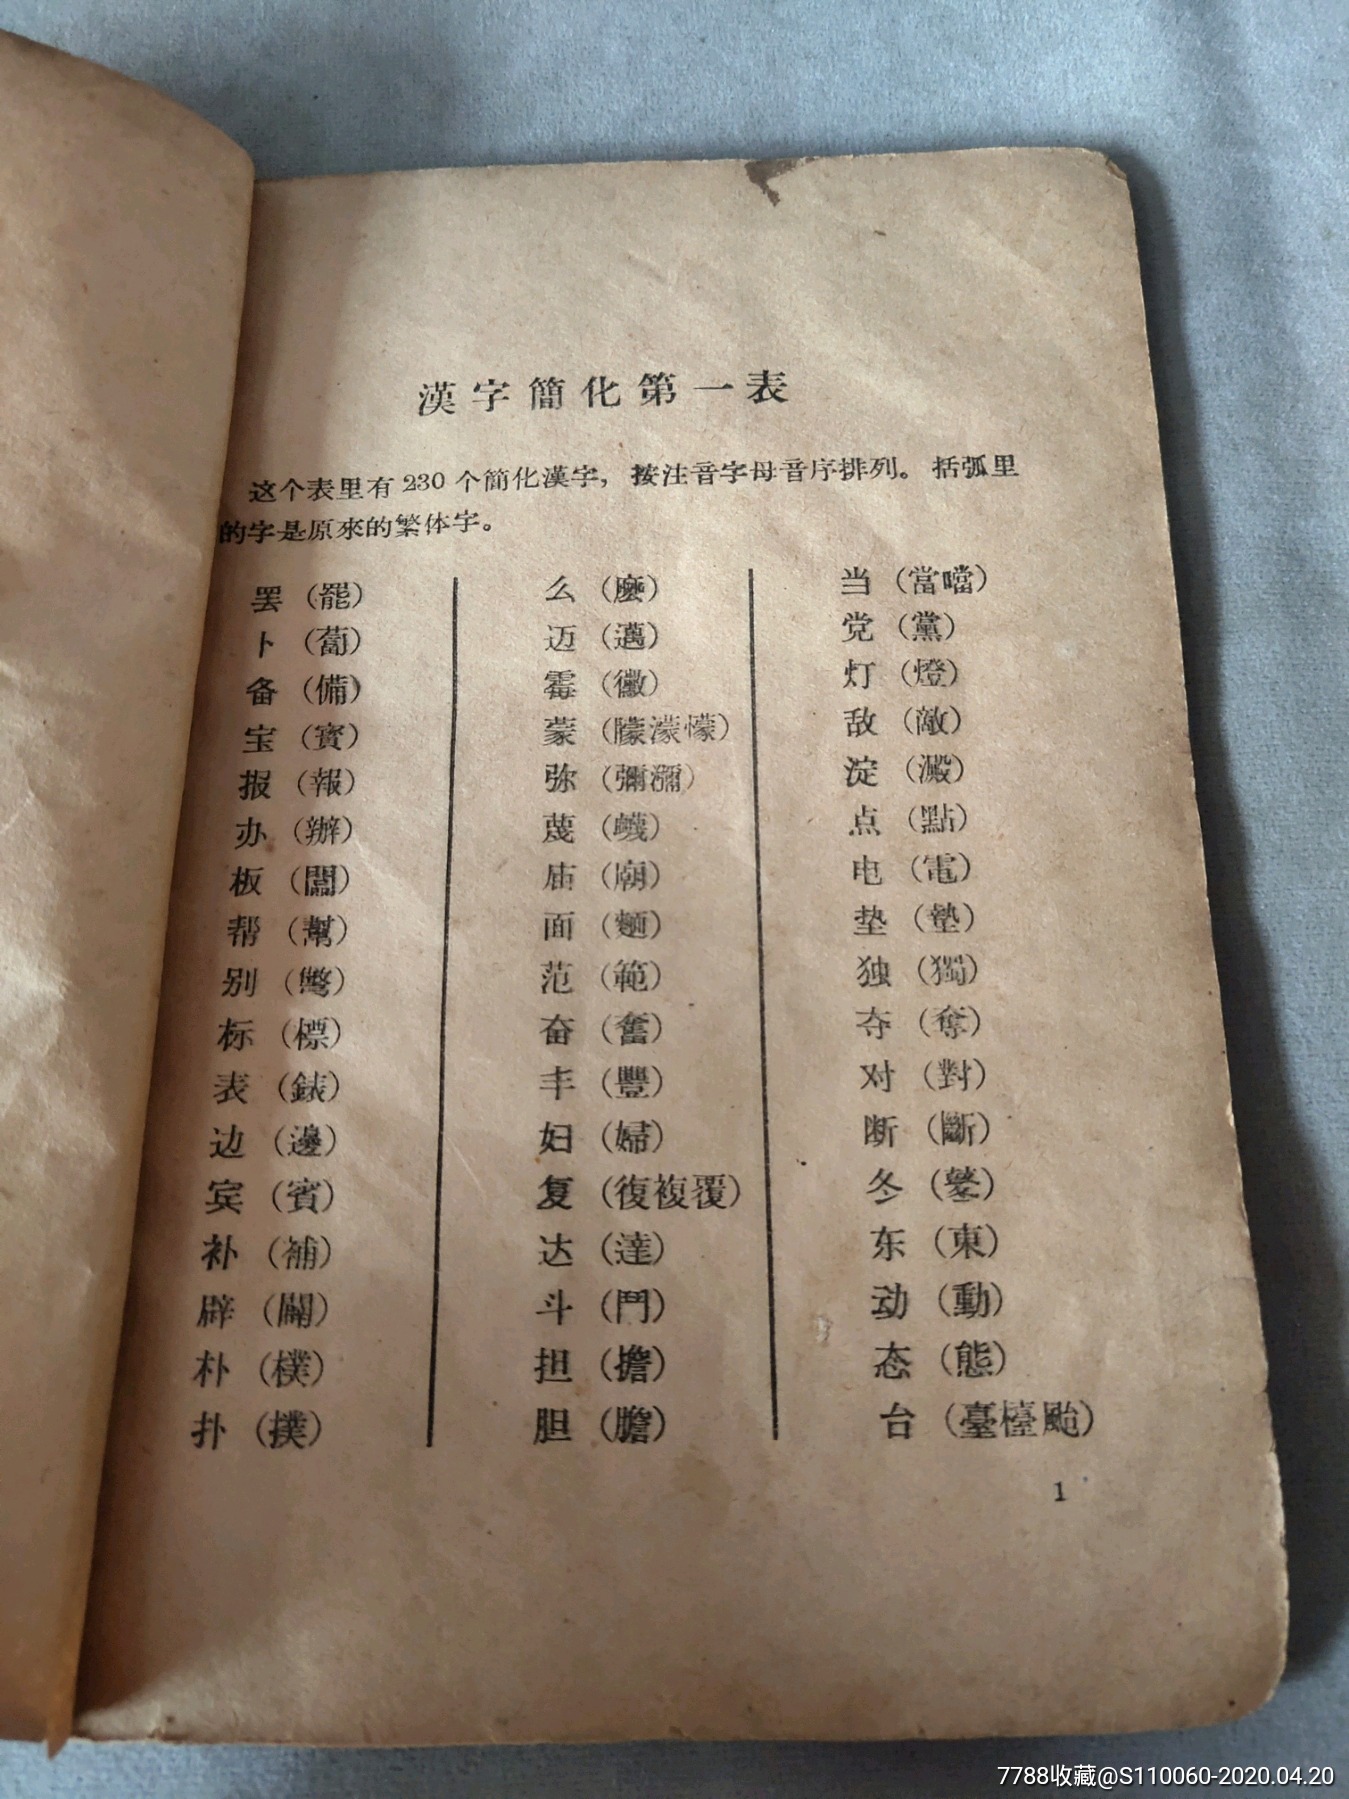 漢字簡化第一表
这个表里有 230 个簡化漢字，按注音字母音序排列。括弧里
的字是原來的繁体字。
罢（罷）
卜（蔔）
备（備）
宝（寳）
报（報）
办（辦）
板（闆）
帮（幫）
别（彆）
标（標）
表（錶）
边（邊）
宾（賓）
补（補）
辟（闢）
朴（樸）
扑（撲）
么（麽）
迈（邁）
霉（黴）
蒙（矇濛懞）
弥（彌瀰）
蔑（衊）
庙（廟）
面（麵）
范（範）
奋（奮）
丰（豐）
妇（婦）
复（復複覆）
达（達）
斗（鬥）
担（擔）
胆（膽）
当（當噹）
党（黨）
灯（燈）
敌（敵）
淀（澱）
点（點）
电（電）
垫（墊）
独（獨）
夺（奪）
对（對）
断（斷）
冬（鼕）
东（東）
动（動）
态（態）
台（臺檯颱）
1
7788收藏@S110060-2020.04.20